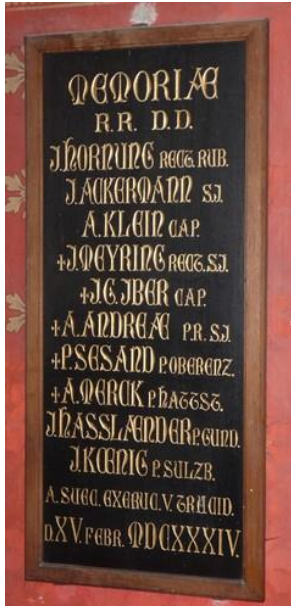 MEMORIÆ
R.R. D.D.
J. HORNUNG RECT. RUB.
J. ACKERMANN S.J.
A. KLEIN CAP.
+J. MEYRING RECT. S.J.
+J. G. IBER CAP.
+A. ANDREÆ PR. S.J.
+P. SESAND P. OBERENZ.
+A. MERCK P. HATTST.
J. HASSLÆNDER P. GUND.
J. KŒNIG P. SULZB.
A SUEC. EXEBUC. V. TRUCID.
D. XV. FEBR. MDCXXXIV.